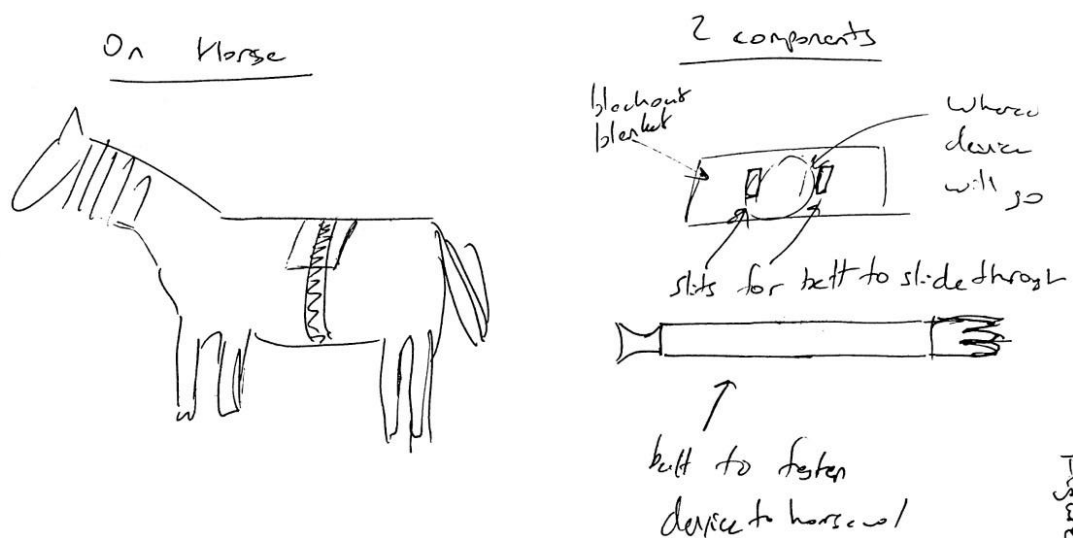 On Horse
2 components
blackout
blanket
where
device
will go
slits for belt to slide through
belt to fasten
device to horse